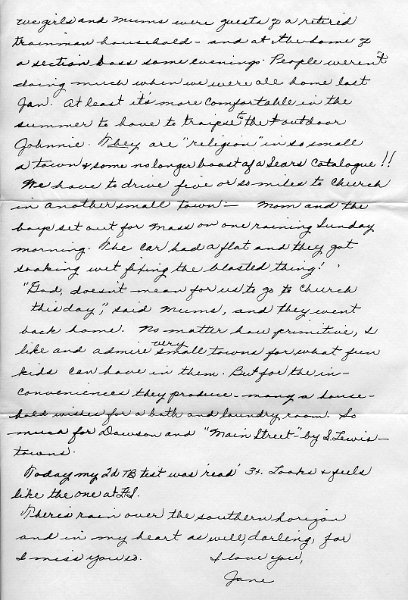 we girls and Mums were guests of a retired
trainman household - and at the home of
a section boss some evenings. People weren't
doing much when we were all home last
Jan. At least it's more comfortable in the
summer to have to traipse to the outdoor
Johnnie. They are "religion" in so small
a town & some no longer boast of a Sears Catalogue!!
We have to drive five or so miles to Church
in another small town - Mom and the
boys set out for Mass on one raining Sunday
morning. The car had a flat and they got
soaking wet fixing the blasted thing!
"God, doesn't mean for us to go to Church
this day," said Mums, and they went
back home. No matter how primitive, I
like and admire very small towns for what fun
kids can have in them. But for the in-
conveniences they produce - many a house-
hold wishes for a bath and laundry room. So
much for Dawson and "Main Street" - by S. Lewis -
towns.
Today my 2d TB test was read 3+. Looks & feels
like the one at Ft.
There's rain over the southern horizon
and in my heart as well, darling, for
I miss you so. I love you,
Jane